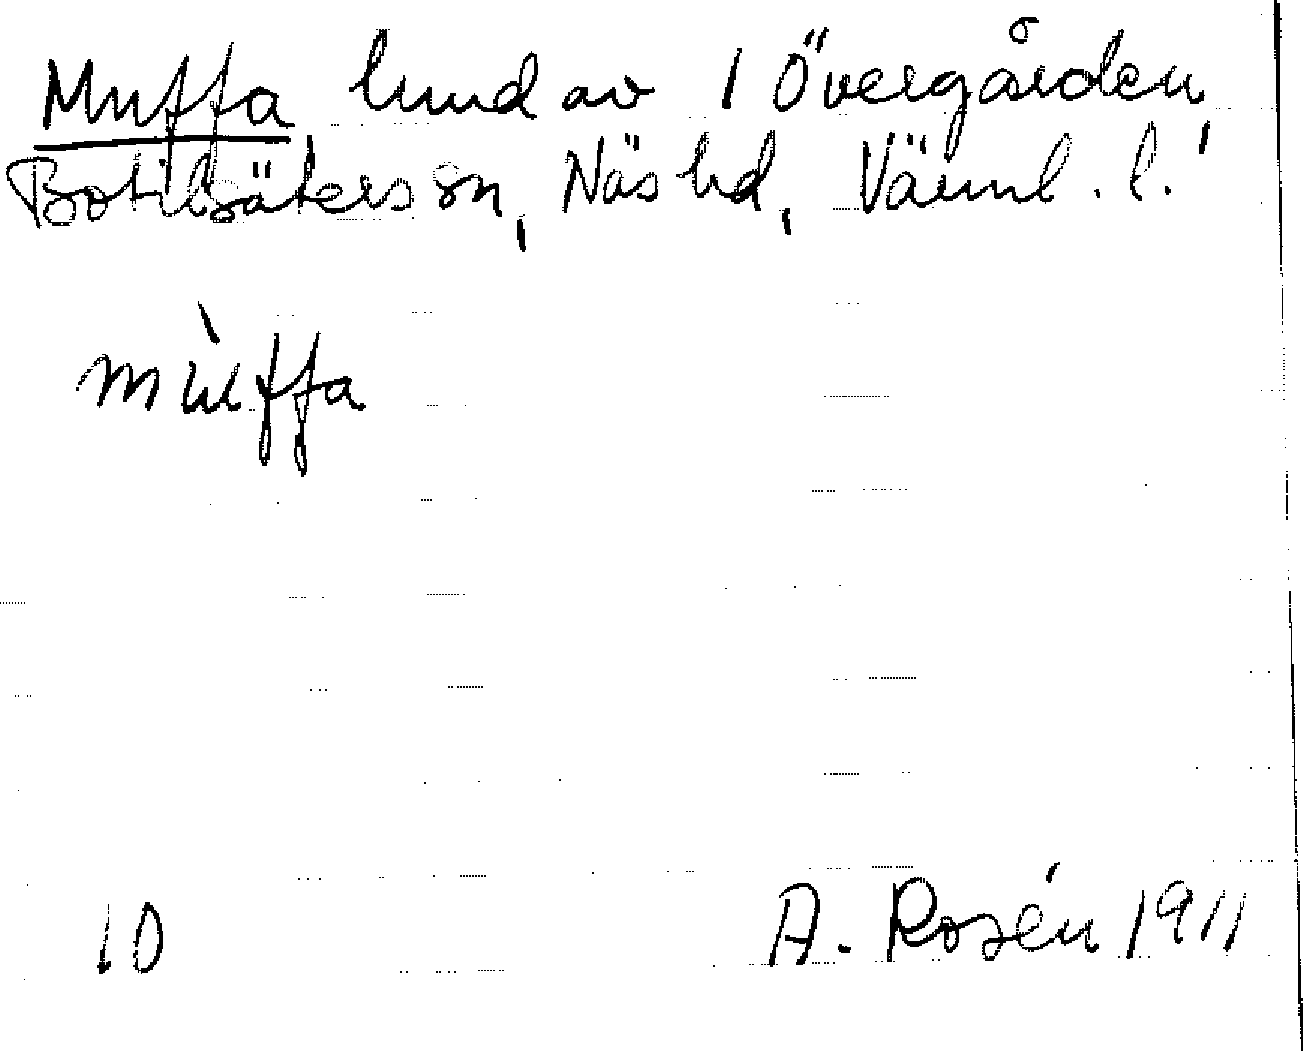 Muffa hund av 1 Övergården,
Botilsäters sn, Näs hd, Värml. l.
mùffa
10 A. Rosén 1911